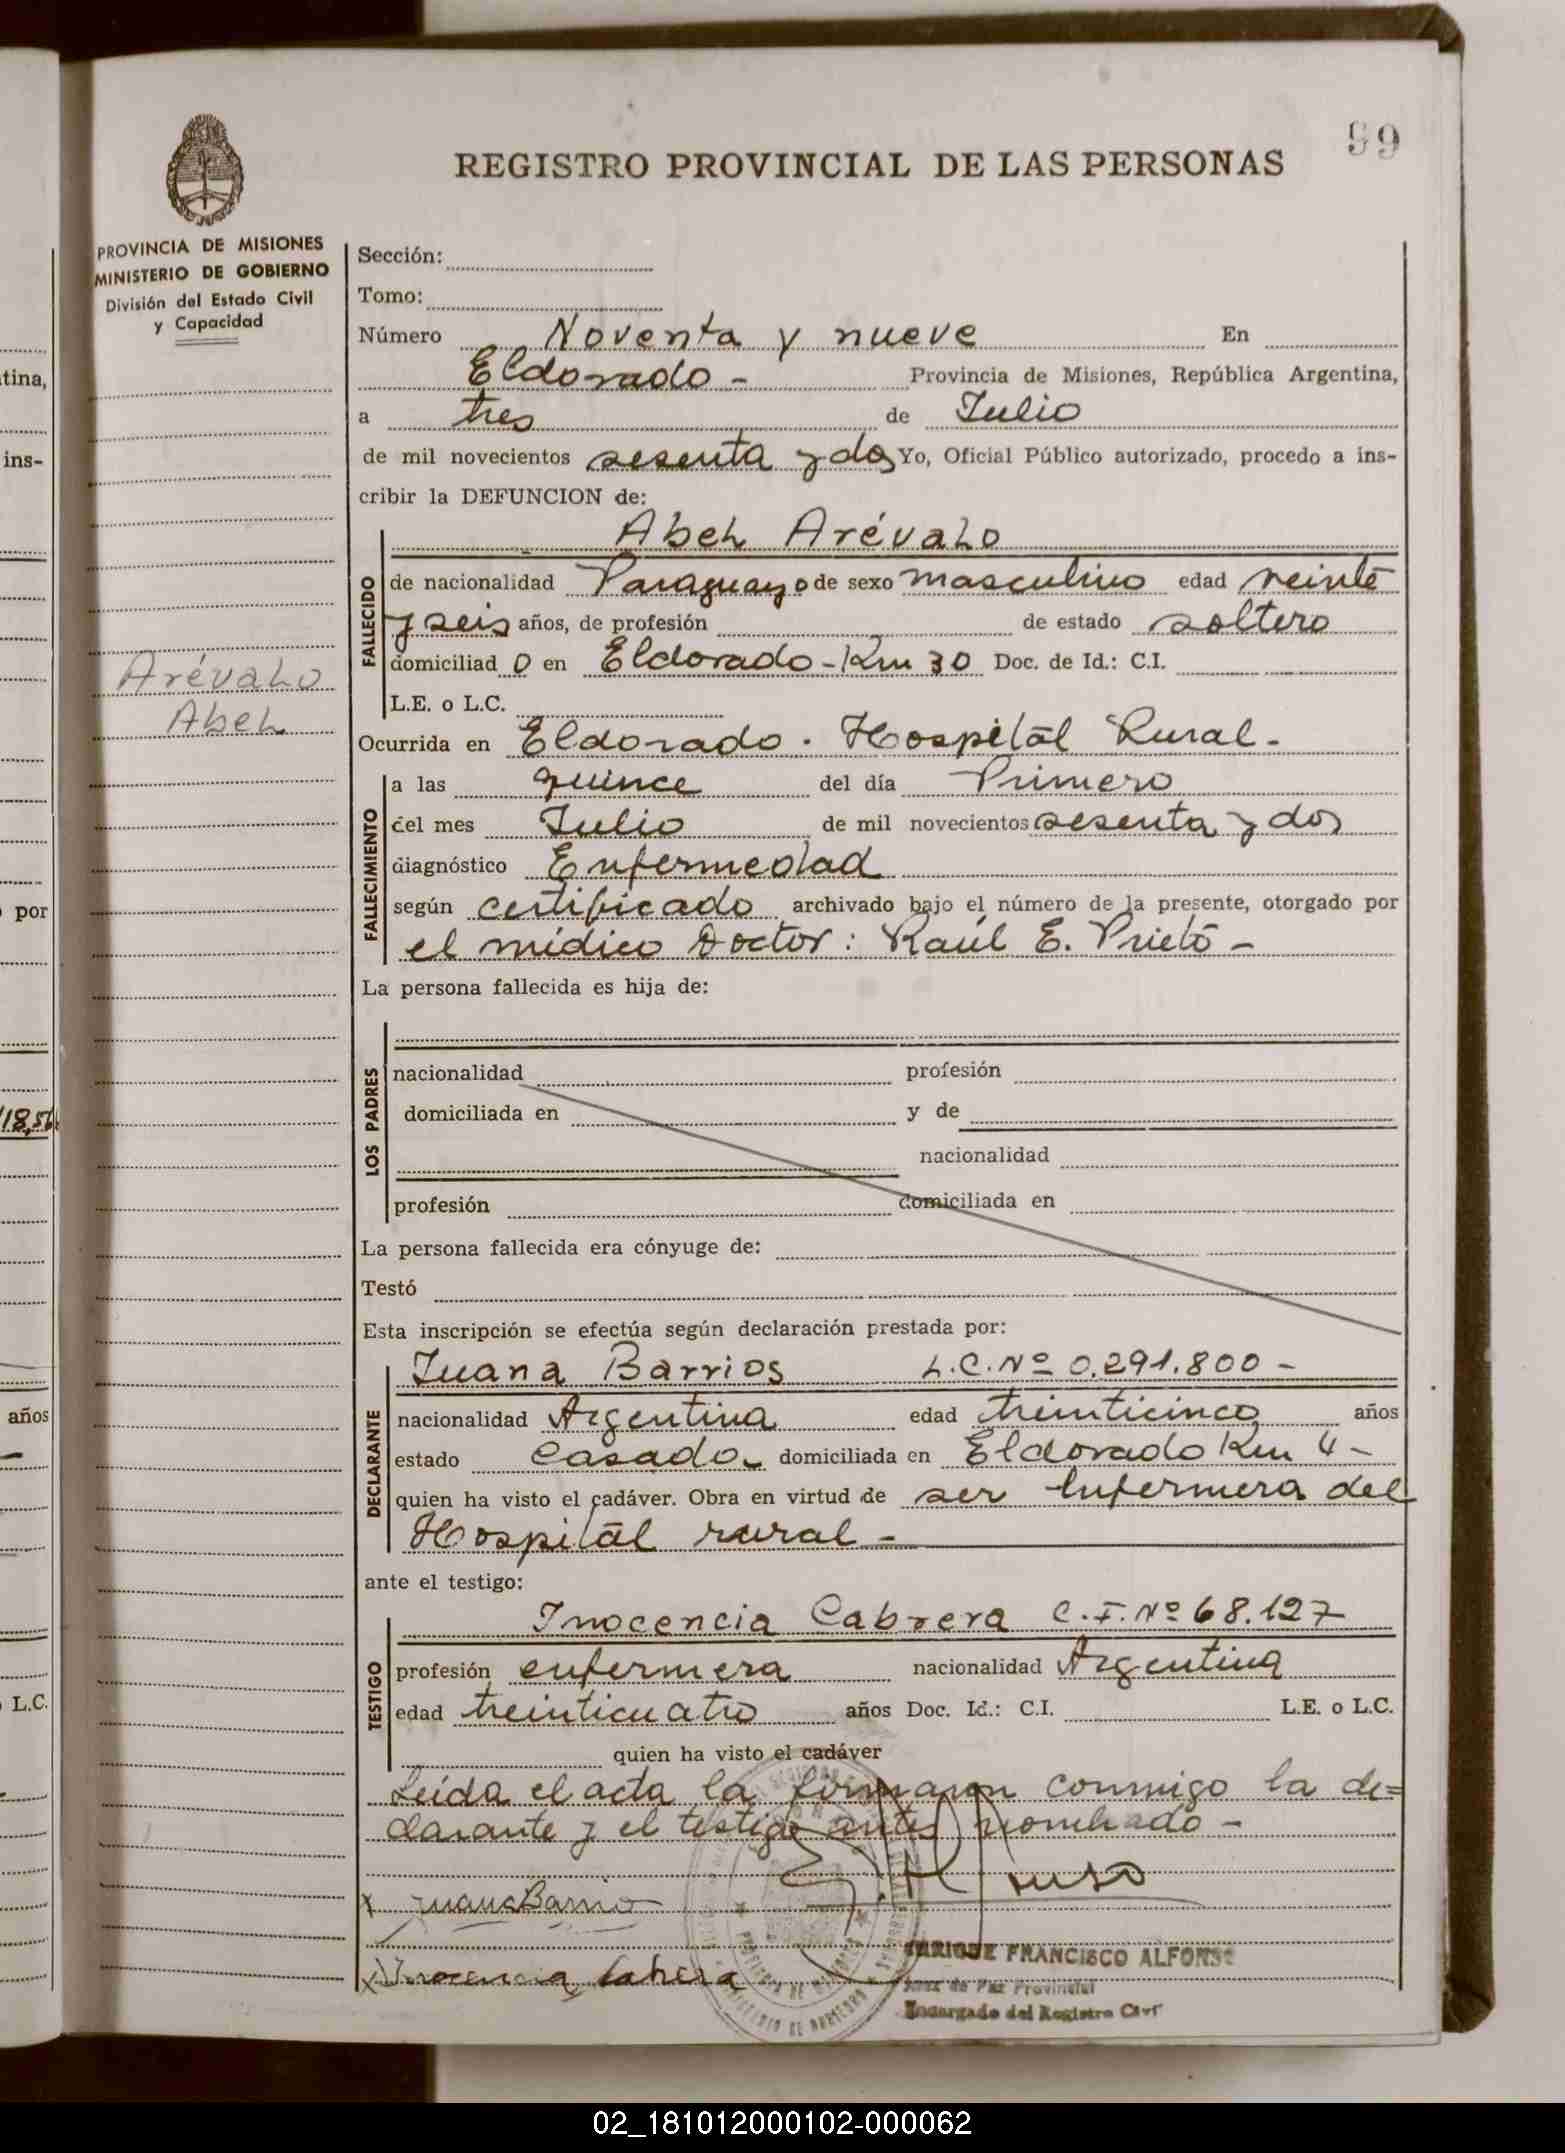 99
REGISTRO PROVINCIAL DE LAS PERSONAS
PROVINCIA DE MISIONES
MINISTERIO DE GOBIERNO
División del Estado Civil
y Capacidad
Arévalo
Abel
Sección:
Tomo:
Número Noventa y nueve En
Eldorado - Provincia de Misiones, República Argentina,
a tres de Julio
de mil novecientos sesenta y dos Yo, Oficial Público autorizado, procedo a ins-
cribir la DEFUNCION de:
Abel Arévalo
FALLECIDO
de nacionalidad Paraguayo de sexo masculino edad veinte
y seis años, de profesión de estado soltero
domiciliad o en Eldorado - Km 30 Doc. de Id.: C.I.
L.E. o L.C.
Ocurrida en Eldorado . Hospital Rural -
FALLECIMIENTO
a las quince del día Primero
del mes Julio de mil novecientos sesenta y dos
diagnóstico Enfermedad
según certificado archivado bajo el número de la presente, otorgado por
el médico Doctor: Raúl E. Prieto -
La persona fallecida es hija de:
LOS PADRES
nacionalidad profesión
domiciliada en y de
nacionalidad
profesión domiciliada en
La persona fallecida era cónyuge de:
Testó
Esta inscripción se efectúa según declaración prestada por:
DECLARANTE
Juana Barrios L.C. Nº 0.291.800 -
nacionalidad Argentina edad treinticinco años
estado Casado domiciliada en Eldorado Km 4 -
quien ha visto el cadáver. Obra en virtud de ser Enfermera del
Hospital rural -
ante el testigo:
TESTIGO
Inocencia Cabrera C.I. Nº 68.127
profesión enfermera nacionalidad Argentina
edad treinticuatro años Doc. Id.: C.I. L.E. o L.C.
quien ha visto el cadáver
Leída el acta la firmaron conmigo la de=
clarante y el testigo antes nombrado -
x Juana Barrio
x Inocencia Cabrera
ENRIQUE FRANCISCO ALFONSO
Juez de Paz Provincial
Encargado del Registro Civil
tina,
ins-
por
118,56
años
L.C.
02_181012000102-000062